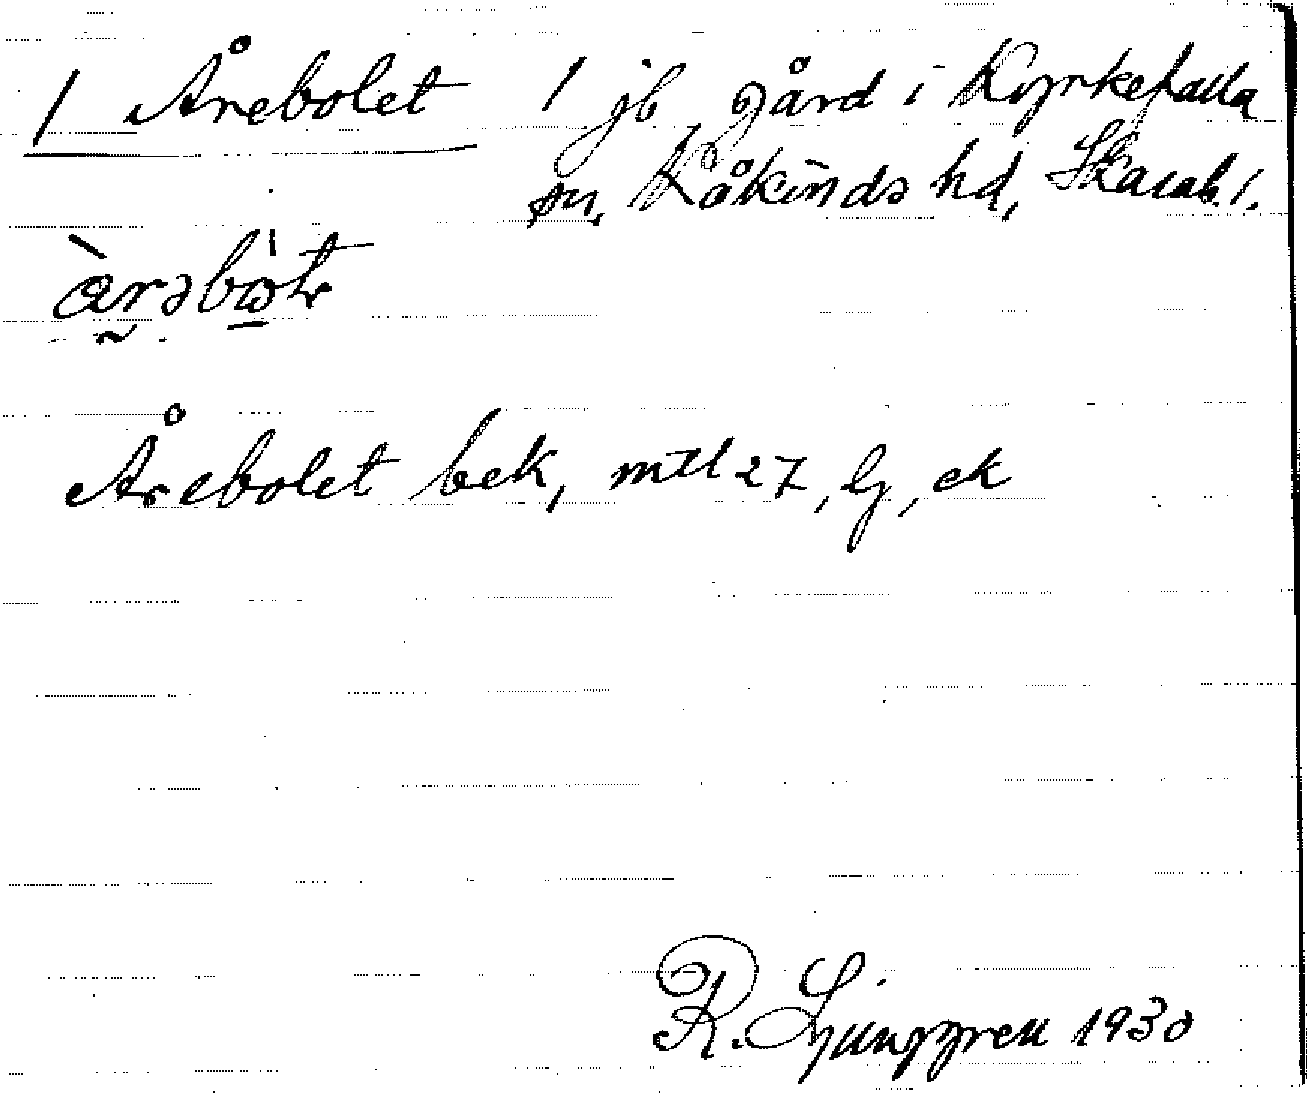 / Årebolet / jb gård i Kyrkefalla
sn, Kåkinds hd, Skarab. l.
Årebolet bek, mtl 27, lg, ek
R. Ljunggren 1930